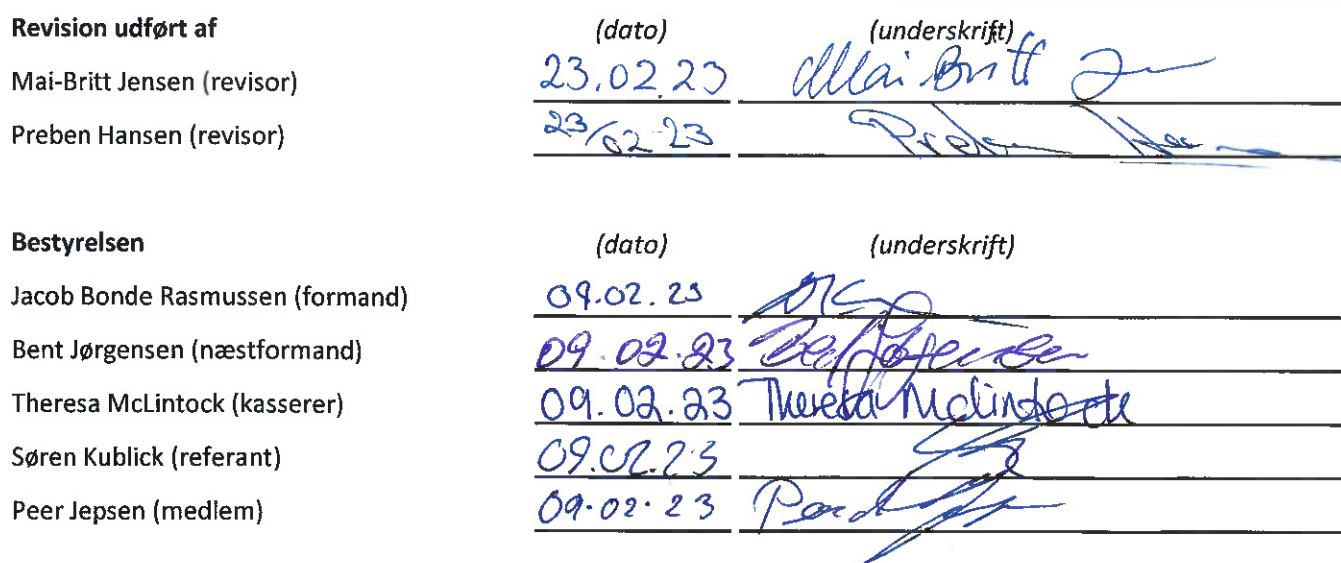 Revision udført af (dato) (underskrift)
Mai-Britt Jensen (revisor) 23.02.23 Mai-Britt
Preben Hansen (revisor) 23/02-23 Preben
Bestyrelsen (dato) (underskrift)
Jacob Bonde Rasmussen (formand) 09.02.23
Bent Jørgensen (næstformand) 09.02.23 Bent Jørgensen
Theresa McLintock (kasserer) 09.02.23 Theresa McLintock
Søren Kublick (referant) 09.02.23
Peer Jepsen (medlem) 09.02.23